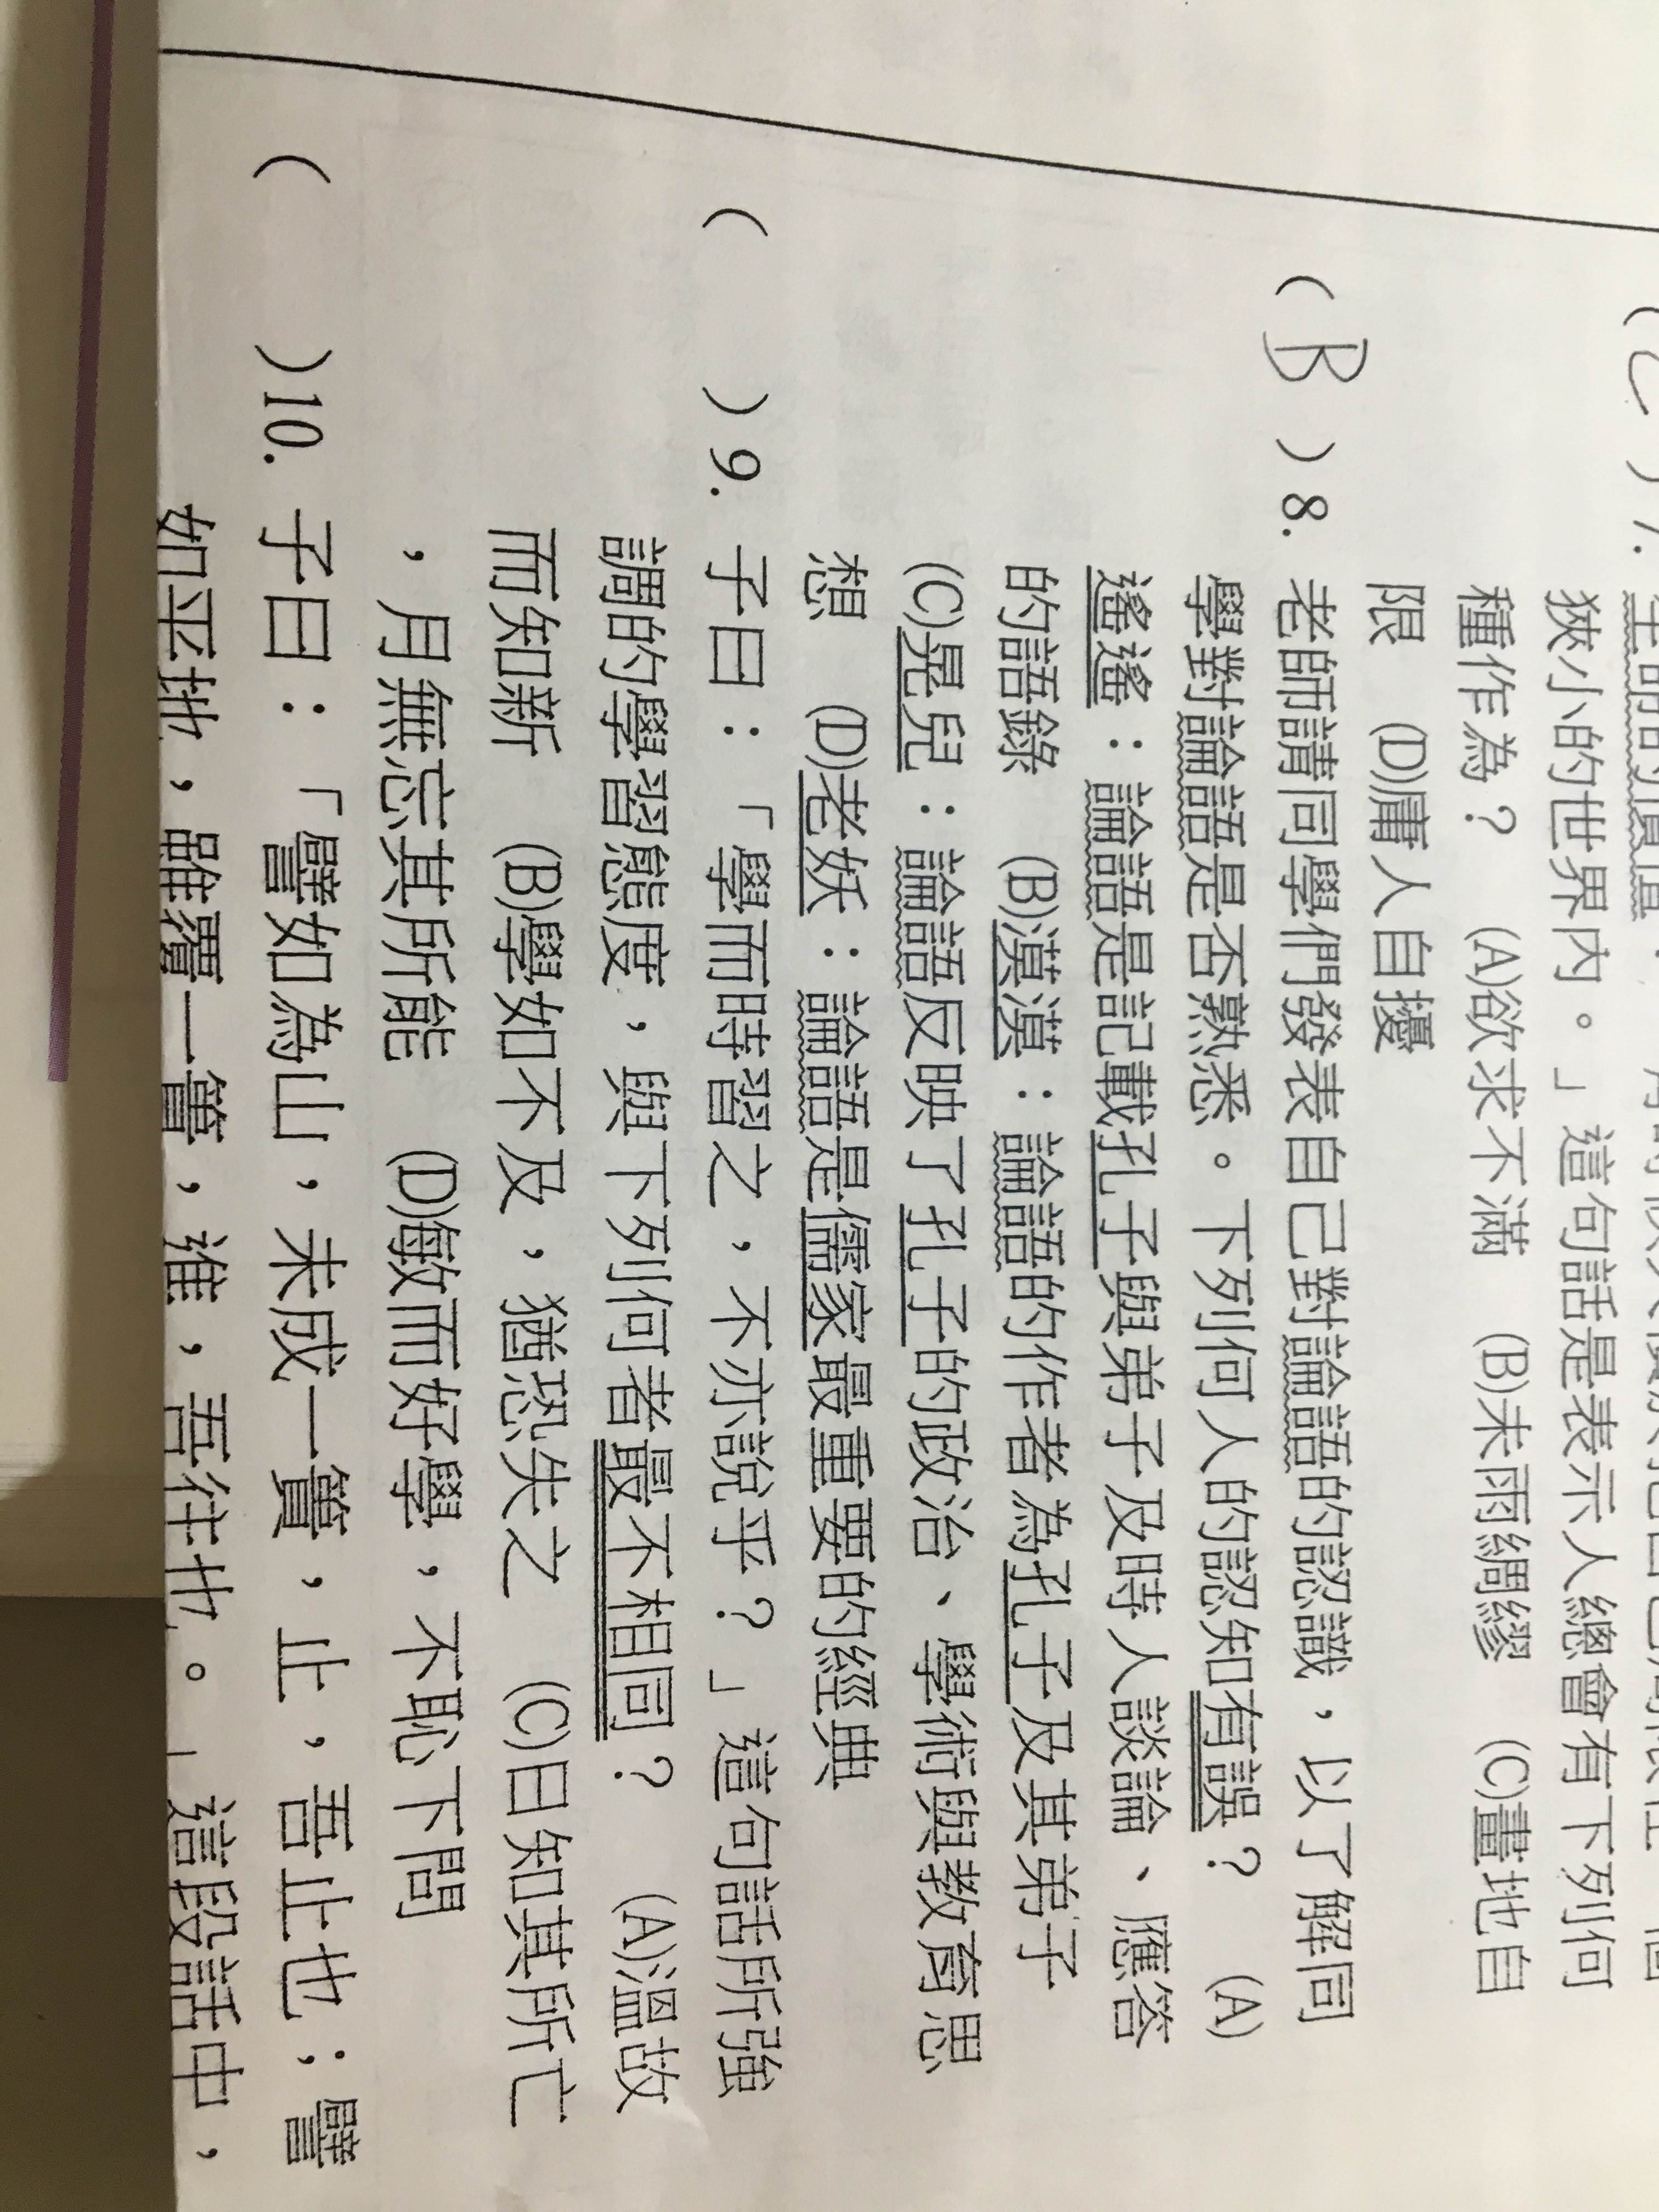 狹小的世界內。」這句話是表示人總會有下列何
種作為？ (A)欲求不滿 (B)未雨綢繆 (C)畫地自
限 (D)庸人自擾
( B )8. 老師請同學們發表自己對論語的認識，以了解同
學對論語是否熟悉。下列何人的認知有誤？ (A)
遙遙：論語是記載孔子與弟子及時人談論、應答
的語錄 (B)漢漢：論語的作者為孔子及其弟子
(C)晃兒：論語反映了孔子的政治、學術與教育思
想 (D)老妖：論語是儒家最重要的經典
( )9. 子曰：「學而時習之，不亦說乎？」這句話所強
調的學習態度，與下列何者最不相同？ (A)溫故
而知新 (B)學如不及，猶恐失之 (C)日知其所亡
，月無忘其所能 (D)敏而好學，不恥下問
( )10. 子曰：「譬如為山，未成一簣，止，吾止也；譬
如平地，雖覆一簣，進，吾往也。」這段話中，